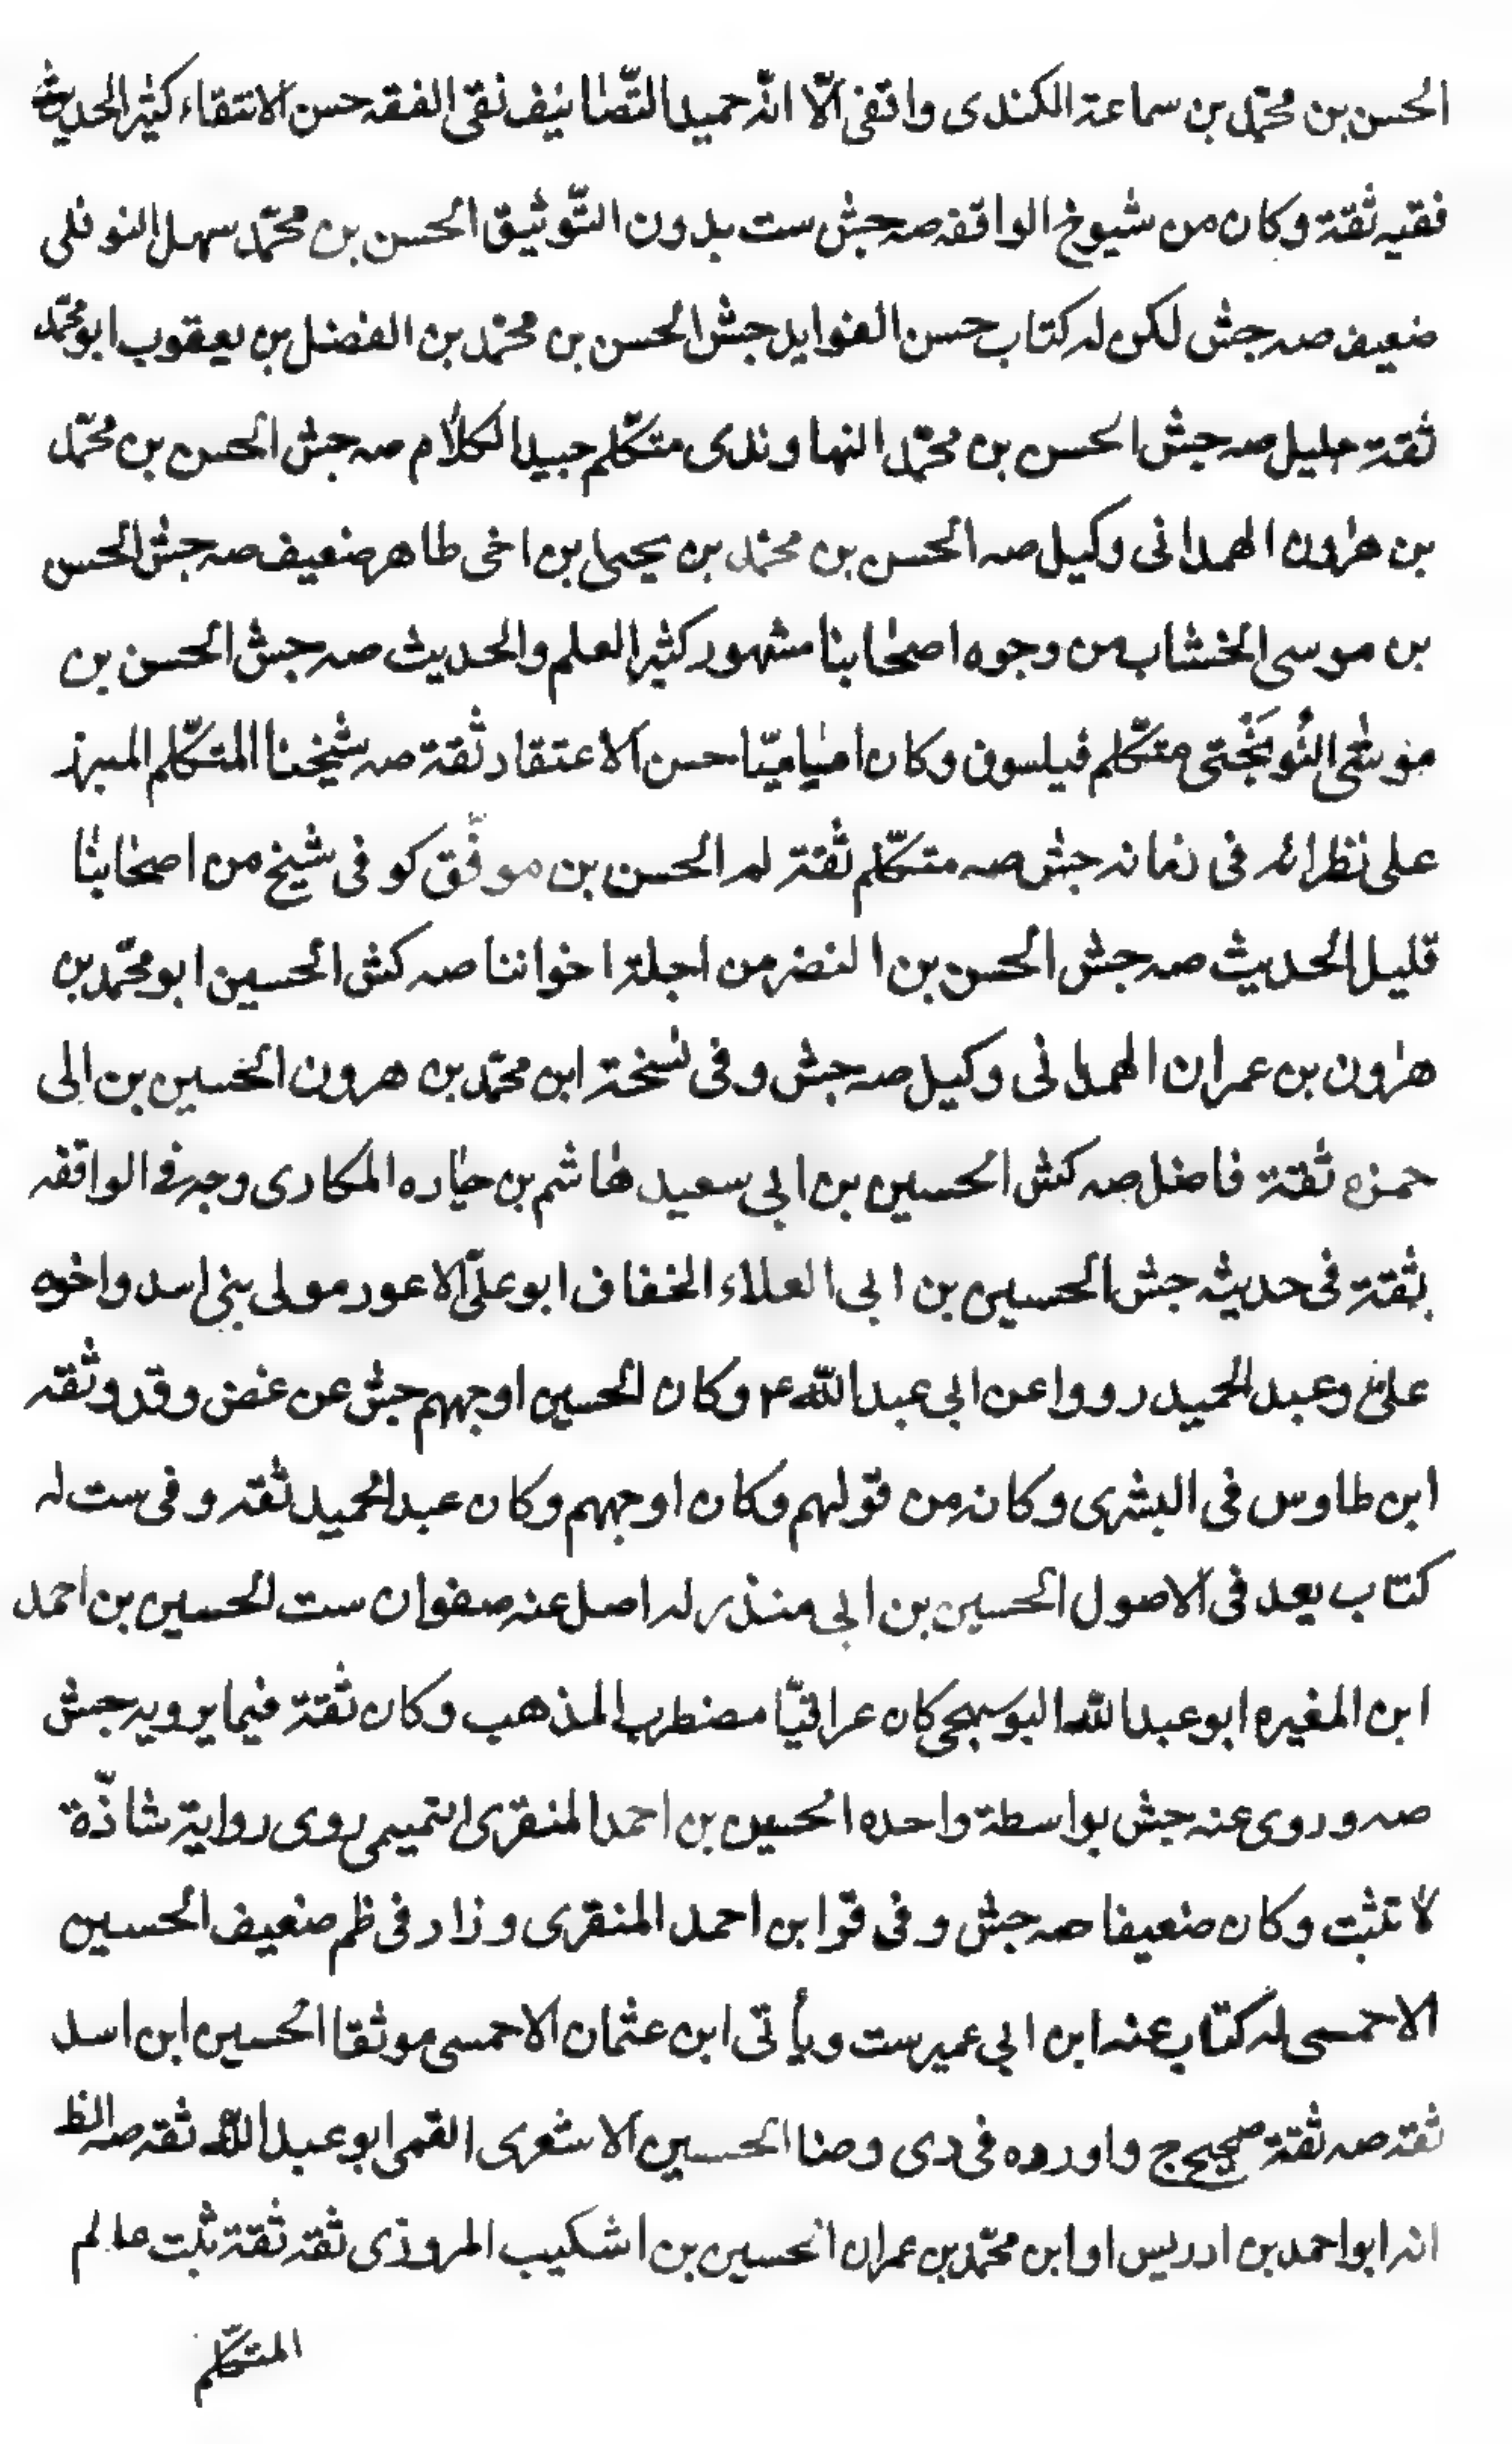 الحسن بن محمّد بن سماعة الكندى واقفى الّا انّه حميد التّصانيف نقى الفقه حسن الانتقاء كثير الحديث
فقيه ثقة وكان من شيوخ الواقفه صه جش ست بدون التّوثيق الحسن بن محمّد سهل النوفلى
ضعيف صه جش لكن له كتاب حسن الفوايد جش الحسن بن محمّد بن الفضل بن يعقوب ابو محمّد
ثقة جليل صه جش الحسن بن محمّد النهاوندى متكلّم جيد الكلام صه جش الحسن بن محمّد
بن هرون الهمدانى وكيل صه الحسن بن محمّد بن يحيى بن اخى طاهر ضعيف صه جش الحسن
بن موسى الخشاب من وجوه اصحابنا مشهور كثير العلم والحديث صه جش الحسن بن
موسى النُوبَخْتى متكلّم فيلسوف وكان اماميّا حسن الاعتقاد ثقة صه شيخنا المتكلّم المبرز
على نظرائه فى زمانه جش صه متكلّم ثقة لم الحسن بن موفّق كوفى شيخ من اصحابنا
قليل الحديث صه جش الحسن بن النضر من اجلة اخواننا صه كش الحسين ابو محمّد بن
هرون بن عمران الهمدانى وكيل صه جش وفى نسخة ابن محمّد بن هرون الحسين بن ابى
حمزه ثقة فاضل صه كش الحسين بن ابى سعيد هاشم بن حياره المكارى وجه فى الواقفه
ثقة فى حديثه جش الحسين بن ابى العلاء الخفاف ابو علىّ الاعور مولى بنى اسد واخوه
على وعبد الحميد رووا عن ابى عبد الله ع وكان الحسين اوجههم جش عن غض وقد وثقه
ابن طاوس فى البشرى وكانه من قولهم وكان اوجههم وكان عبد الحميد ثقه وفى ست له
كتاب يعد فى الاصول الحسين بن ابى منذر له اصل عنه صفوان ست الحسين بن احمد
ابن المغيره ابو عبد الله البوسجى كان عراقيّا مضطرب المذهب وكان ثقة فيما يرويه جش
صه وروى عنه جش بواسطة واحده الحسين بن احمد المنقرى التميمى روى رواية شاذّة
لا تثبت وكان ضعيفا صه جش وفى قر ابن احمد المنقرى وزاد فى ظم ضعيف الحسين
الاحمسى له كتاب عنه ابن ابى عمير ست ويأتى ابن عثمان الاحمسى موثقا الحسين ابن اسد
ثقه صه ثقة صحيح ج واورده فى دى وضا الحسين الاشعرى القمى ابو عبد الله ثقه صه الظ
انه ابو احمد بن ادريس او ابن محمّد بن عمران الحسين بن اشكيب المروزى ثقه ثقة ثبت عالم
المتكلّم